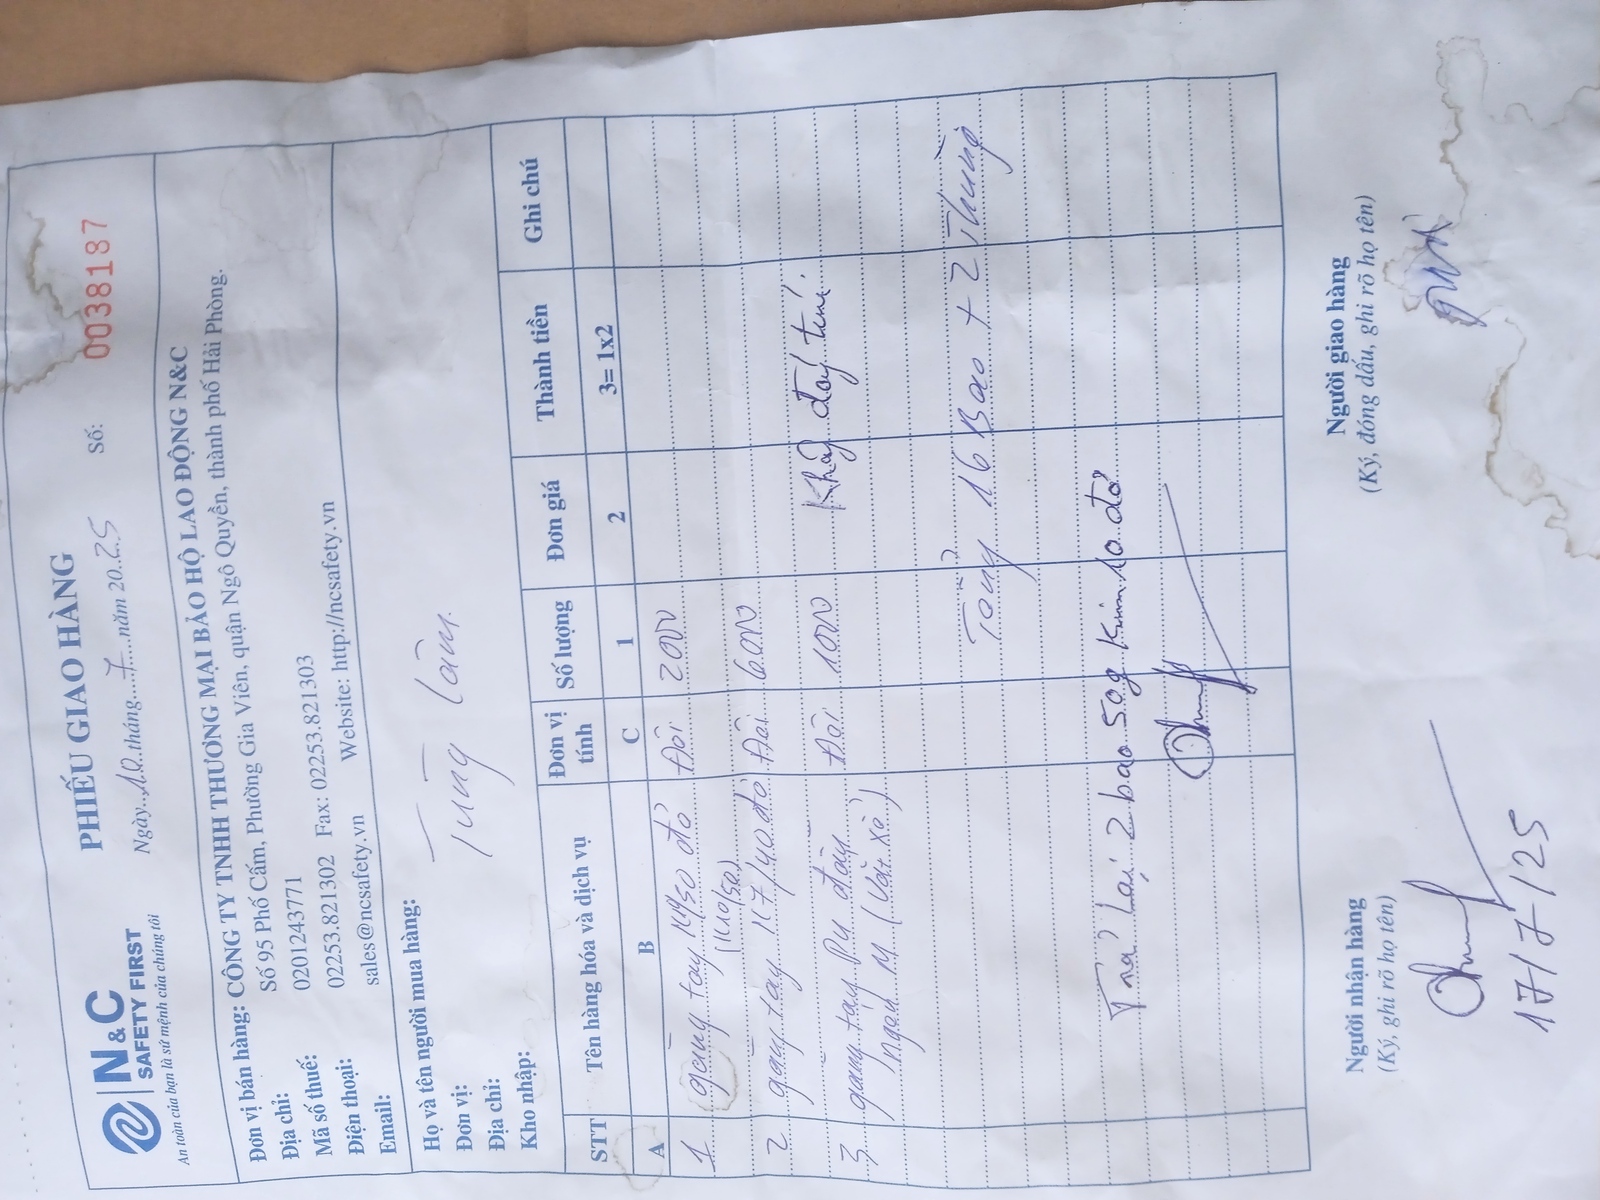 N&C
SAFETY FIRST
An toàn của bạn là sứ mệnh của chúng tôi
PHIẾU GIAO HÀNG
Ngày...10..tháng...7...năm 20.25
Số: 0038187
Đơn vị bán hàng: CÔNG TY TNHH THƯƠNG MẠI BẢO HỘ LAO ĐỘNG N&C
Địa chỉ: Số 95 Phố Cấm, Phường Gia Viên, quận Ngô Quyền, thành phố Hải Phòng.
Mã số thuế: 0201243771
Điện thoại: 02253.821302 Fax: 02253.821303
Email: sales@ncsafety.vn Website: http://ncsafety.vn
Họ và tên người mua hàng:
Đơn vị: Tùng Lâm
Địa chỉ:
Kho nhập:
STT Tên hàng hóa và dịch vụ Đơn vị tính Số lượng Đơn giá Thành tiền Ghi chú
A B C 1 2 3= 1x2
1 găng tay đỏ Đôi 2000
(K10/50)
2 găng tay K7/40 đỏ Đôi 6000
3 găng tay PU Đôi 1000 tính.
ngón M (Vắt xổ)
Tổng 16 Bao + 2 Thùng
Trả lại 2 bao 50g Kim 10 đỏ
Người nhận hàng
(Ký, ghi rõ họ tên)
17/7/25
Người giao hàng
(Ký, đóng dấu, ghi rõ họ tên)